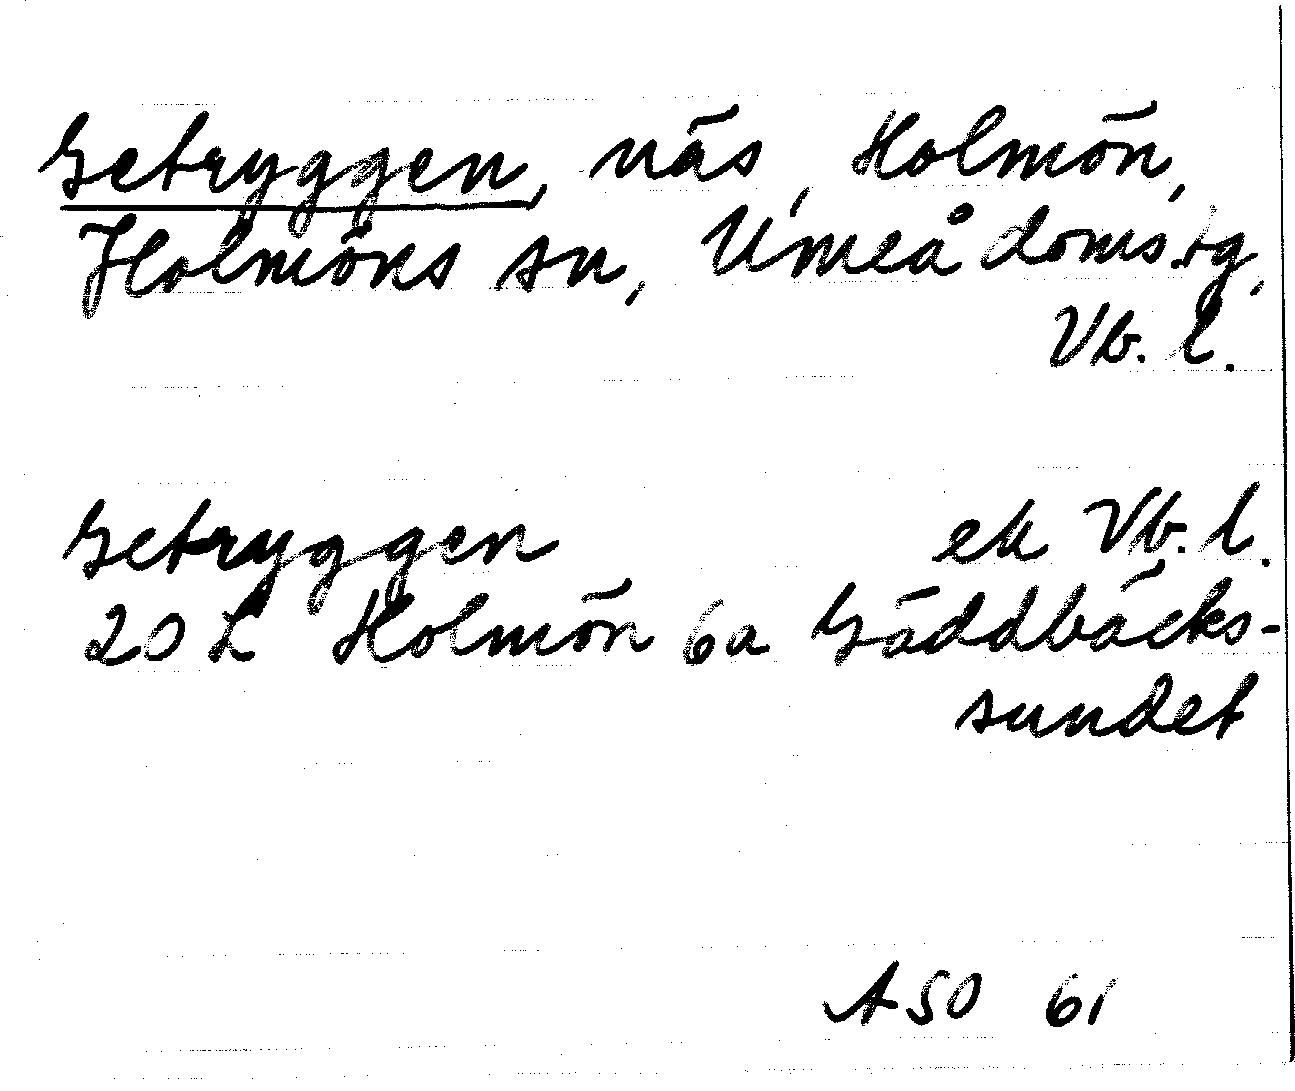 Getryggen, näs, Holmön,
Holmöns sn, Umeå doms.sg,
Vb. l.
Getryggen ek Vb. l.
20 L Holmön 6a Gäddbäcks-
sundet
ASO 61